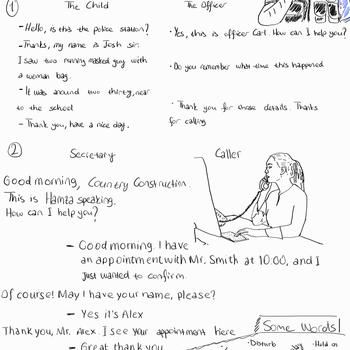 1 The Child The Officer
- Hello, is this the police station? · Yes, this is officer Carl. How can I help you?
- Thanks, my name is Josh sir.
I saw two running masked guy with
a woman bag. · Do you remember what time this happened
- It was around two thirty, near
to the school · Thank you for those details. Thanks
- Thank you, have a nice day. for calling
2 Secretary Caller
Good morning, Country Construction.
This is Hamza speaking.
How can I help you?
- Good morning. I have
an appointment with Mr. Smith at 10:00, and I
just wanted to confirm.
Of course! May I have your name, please?
- Yes it's Alex
Thank you, Mr. Alex. I see your appointment here
Some Words!
- Great thank you · Disturb · Hold on